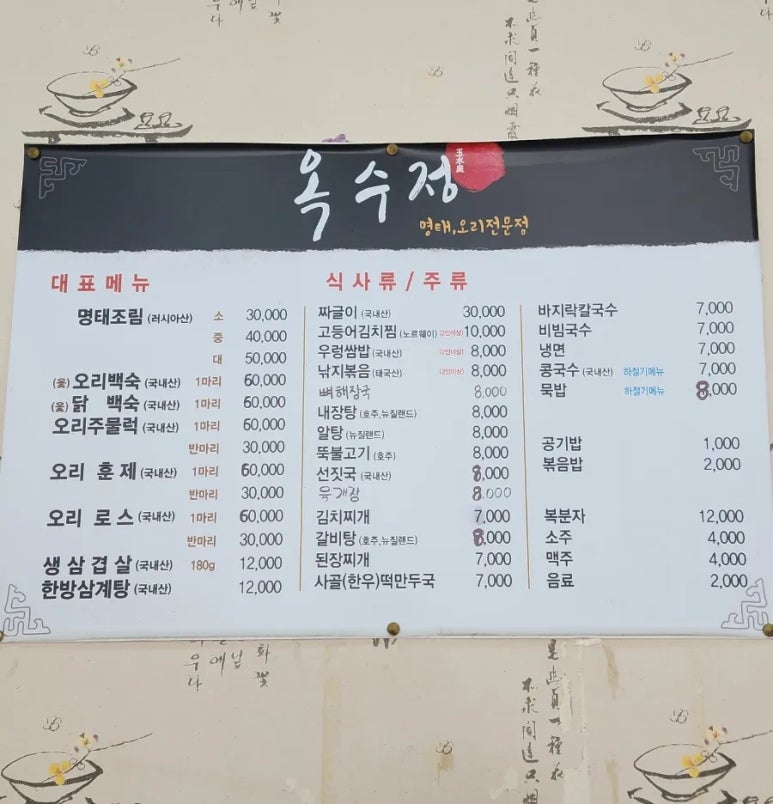 옥수정
명태,오리전문정
대표메뉴
명태조림 (러시아산) 소 30,000
중 40,000
대 50,000
(옻) 오리백숙 (국내산) 1마리 60,000
(옻) 닭 백숙 (국내산) 1마리 60,000
오리주물럭 (국내산) 1마리 60,000
반마리 30,000
오리 훈제 (국내산) 1마리 60,000
반마리 30,000
오리 로스 (국내산) 1마리 60,000
반마리 30,000
생삼겹살 (국내산) 180g 12,000
한방삼계탕 (국내산) 12,000
식사류 / 주류
짜글이 (국내산) 30,000
고등어김치찜 (노르웨이) (2인이상) 10,000
우렁쌈밥 (국내산) (2인이상) 8,000
낙지볶음 (태국산) (2인이상) 8,000
뼈해장국 8,000
내장탕 (호주,뉴질랜드) 8,000
알탕 (뉴질랜드) 8,000
뚝불고기 (호주) 8,000
선짓국 (국내산) 8,000
육개장 8,000
김치찌개 7,000
갈비탕 (호주,뉴질랜드) 8,000
된장찌개 7,000
사골(한우)떡만두국 7,000
바지락칼국수 7,000
비빔국수 7,000
냉면 7,000
콩국수 (국내산) 하절기메뉴 7,000
묵밥 하절기메뉴 8,000
공기밥 1,000
볶음밥 2,000
복분자 12,000
소주 4,000
맥주 4,000
음료 2,000